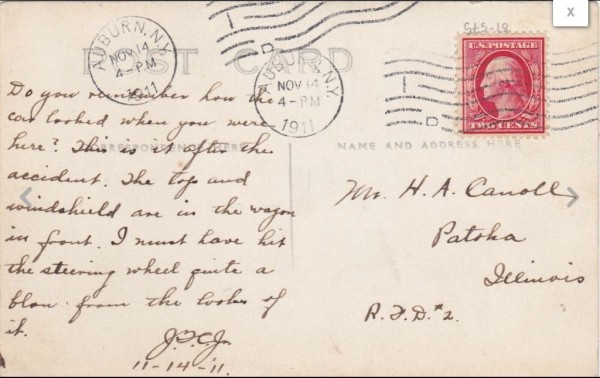 x
SLS-18
AUBURN, N.Y.
NOV 14
4-PM
1911
D
AUBURN, N.Y.
NOV 14
4-PM
1911
D
U.S. POSTAGE
TWO CENTS
POST CARD
CORRESPONDENCE HERE
NAME AND ADDRESS HERE
Do you remember how the
car looked when you were
here? This is it after the
accident. The top and
windshield are in the wagon
in front. I must have hit
the steering wheel quite a
blow from the looks of
it.
J.F.C.Jr.
11-14-11.
Mr. H. A. Canoll
Patoka
Illinois
R.F.D. #2.